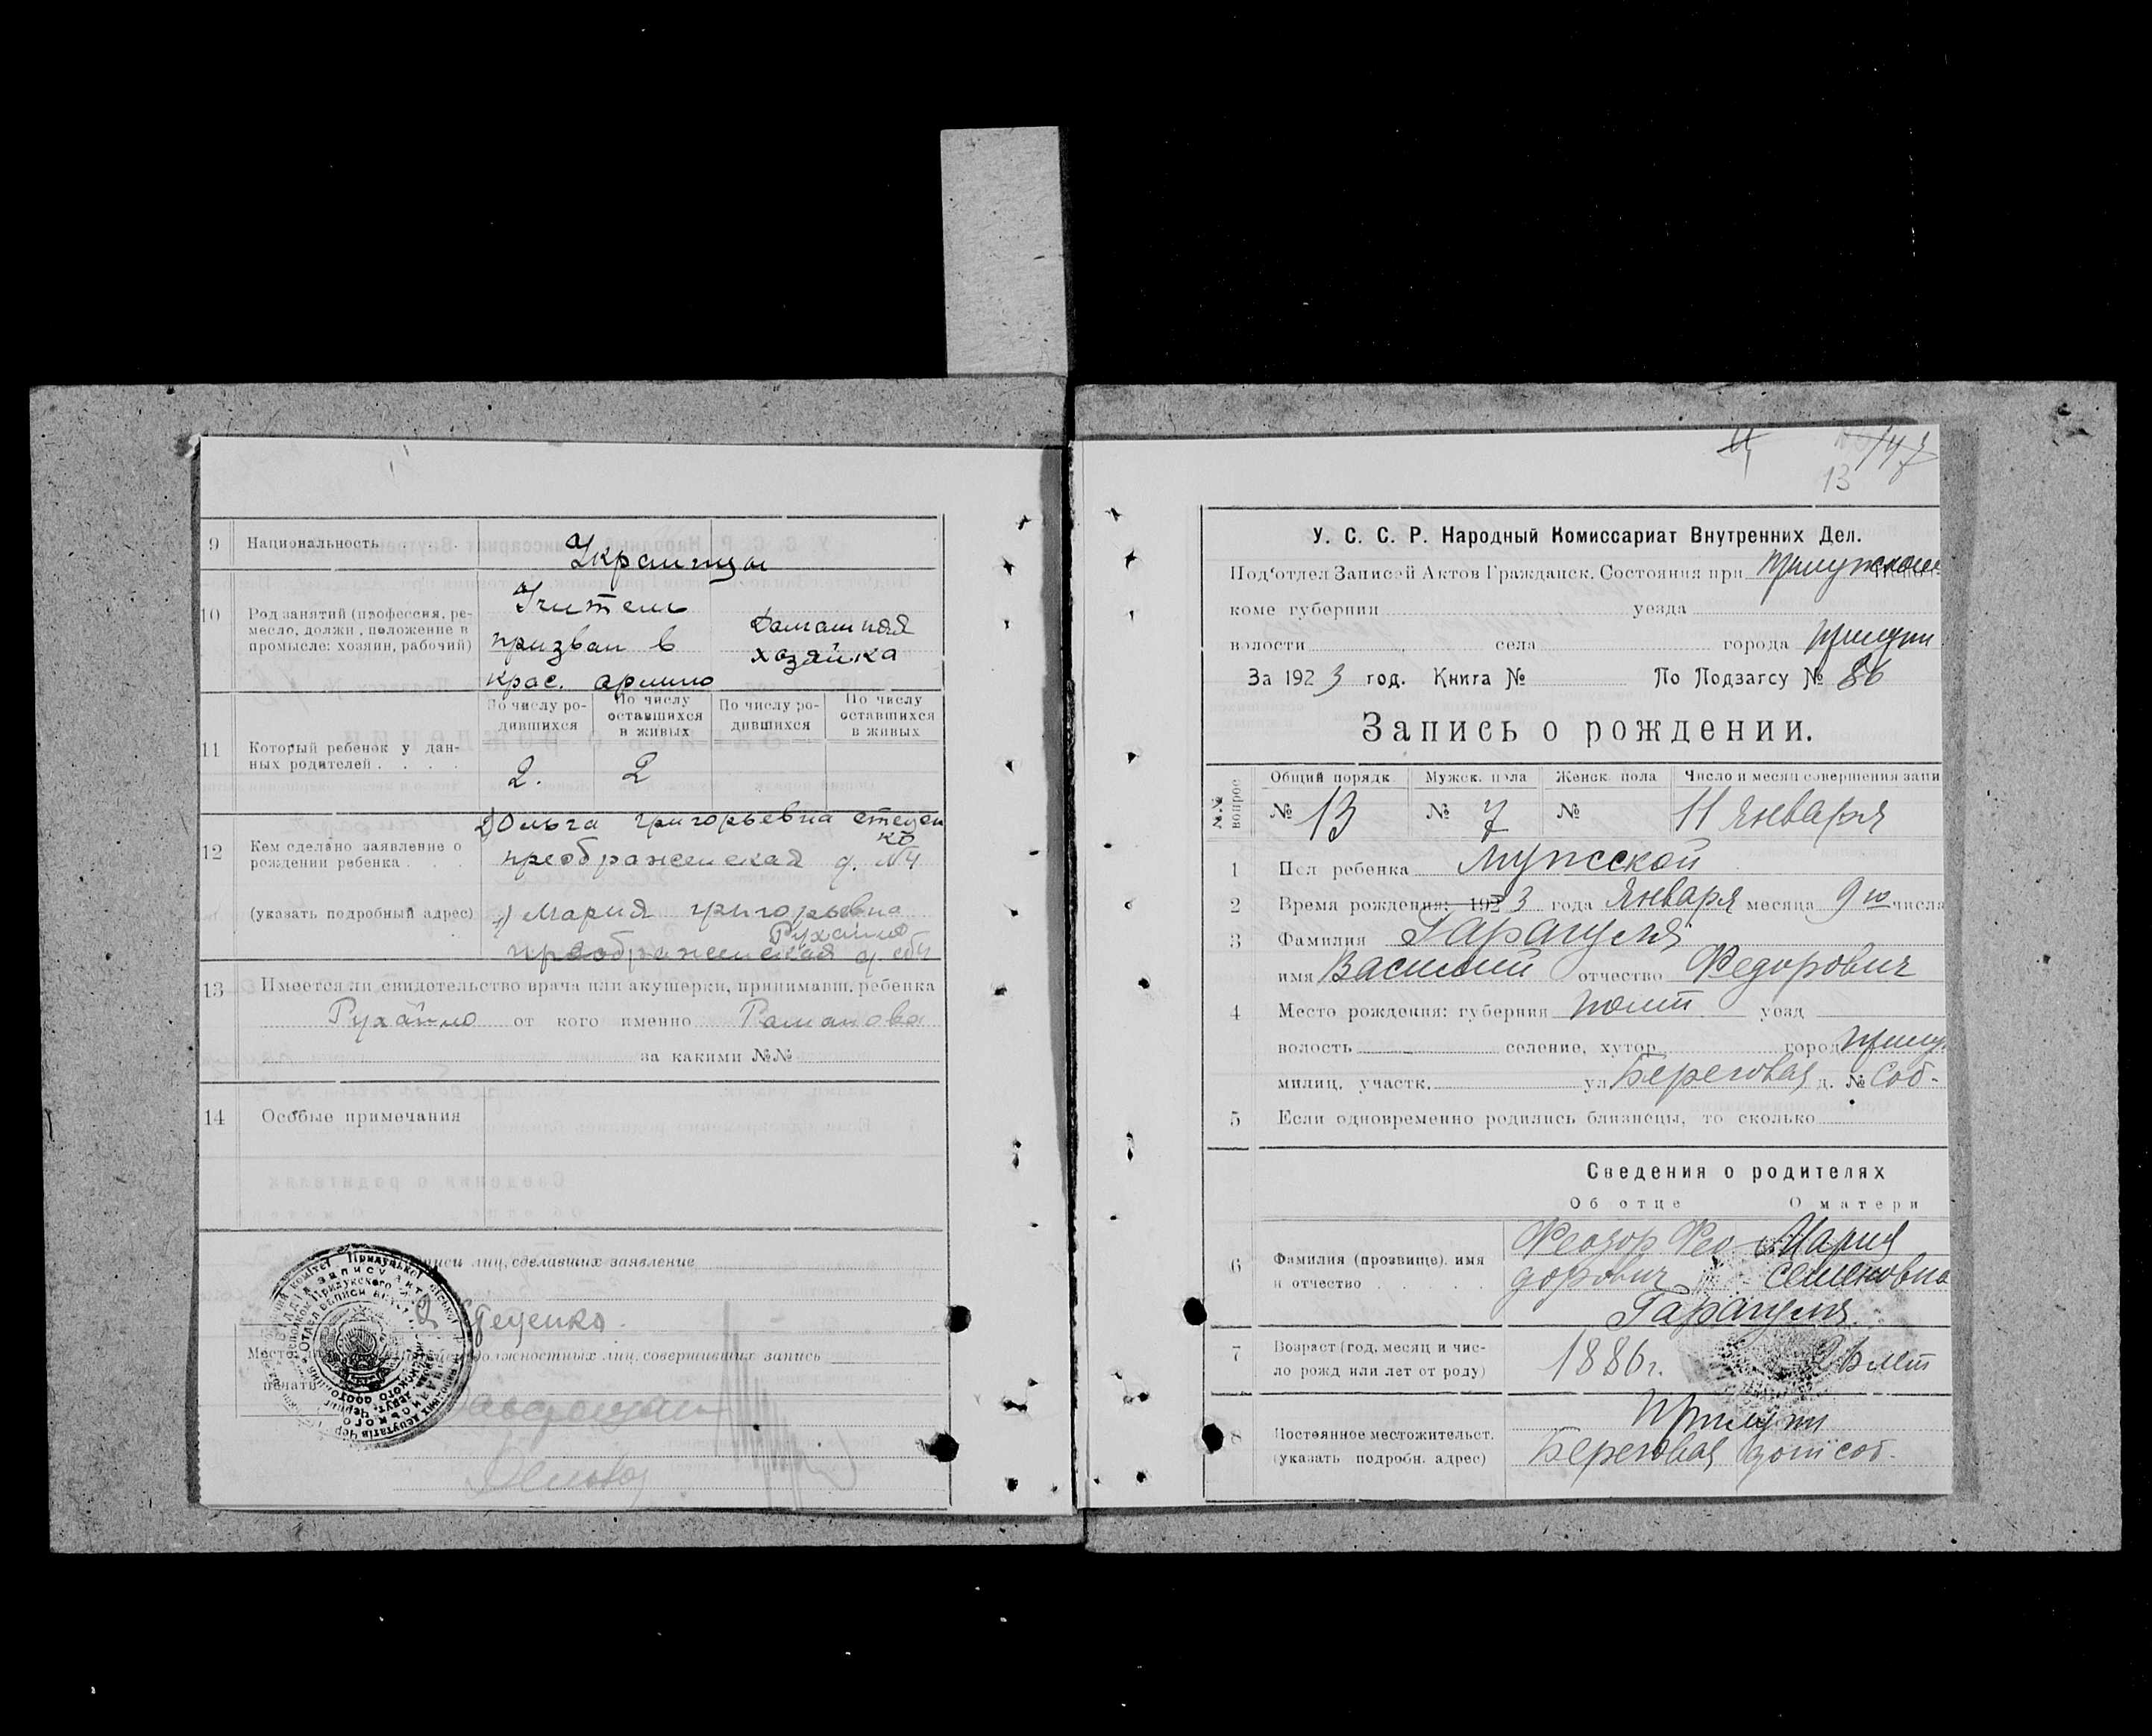 9 Национальность
Украинцы
10 Род занятий (профессия, ре-
месло, должн., положение в
промысле: хозяин, рабочий)
Учитель
призван в
крас. армию
Домашняя
хозяйка
11 Который ребенок у дан-
ных родителей
По числу ро-
дившихся
По числу
оставшихся
в живых
По числу ро-
дившихся
По числу
оставшихся
в живых
2. 2
12 Кем сделано заявление о
рождении ребенка
(указать подробный адрес)
Ольга Григорьевна Стецен
ко
преображенская д. №4
Мария Григорьевна
Рухайло
преображенская д.
13 Имеется ли свидетельство врача или акушерки, принимавш. ребенка
Рухайло от кого именно Романова
за какими №№
14 Особые примечания
лиц, сделавших заявление
Стеценко
Место
печати
должностных лиц, совершивших запись
13
У. С. С. Р. Народный Комиссариат Внутренних Дел.
Под‘отдел Записей Актов Гражданск. Состояния при Прилукском
коме губернии уезда
волости села города Прилуки
За 1923 год. Книга № По Подзагсу № 86
Запись о рождении.
№№ вопрос
Общий порядк. Мужск. пола Женск. пола Число и месяц совершения запи
№ 13 № 7 № 11 Января
1 Пол ребенка Мужской
2 Время рождения: 1923 года Января месяца 9го числа
3 Фамилия Гарагуля
имя Василий отчество Федорович
4 Место рождения: губерния Полт уезд
волость селение, хутор город Прилу.
милиц. участк. ул Береговая д. № Соб.
5 Если одновременно родились близнецы, то сколько
Сведения о родителях
Об отце О матери
6 Фамилия (прозвище), имя
и отчество
Феодор Фео
дорович
Мария
Семеновна
Гарагуля
7 Возраст (год, месяц и чис-
ло рожд или лет от роду)
1886г. лет
8 Постоянное местожительст.
(указать подробн. адрес)
Прилуки
Береговая дом соб.